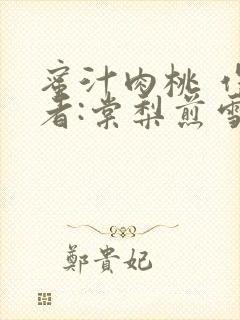 蜜汁肉桃 作
者:棠梨煎雪
鄭貴妃